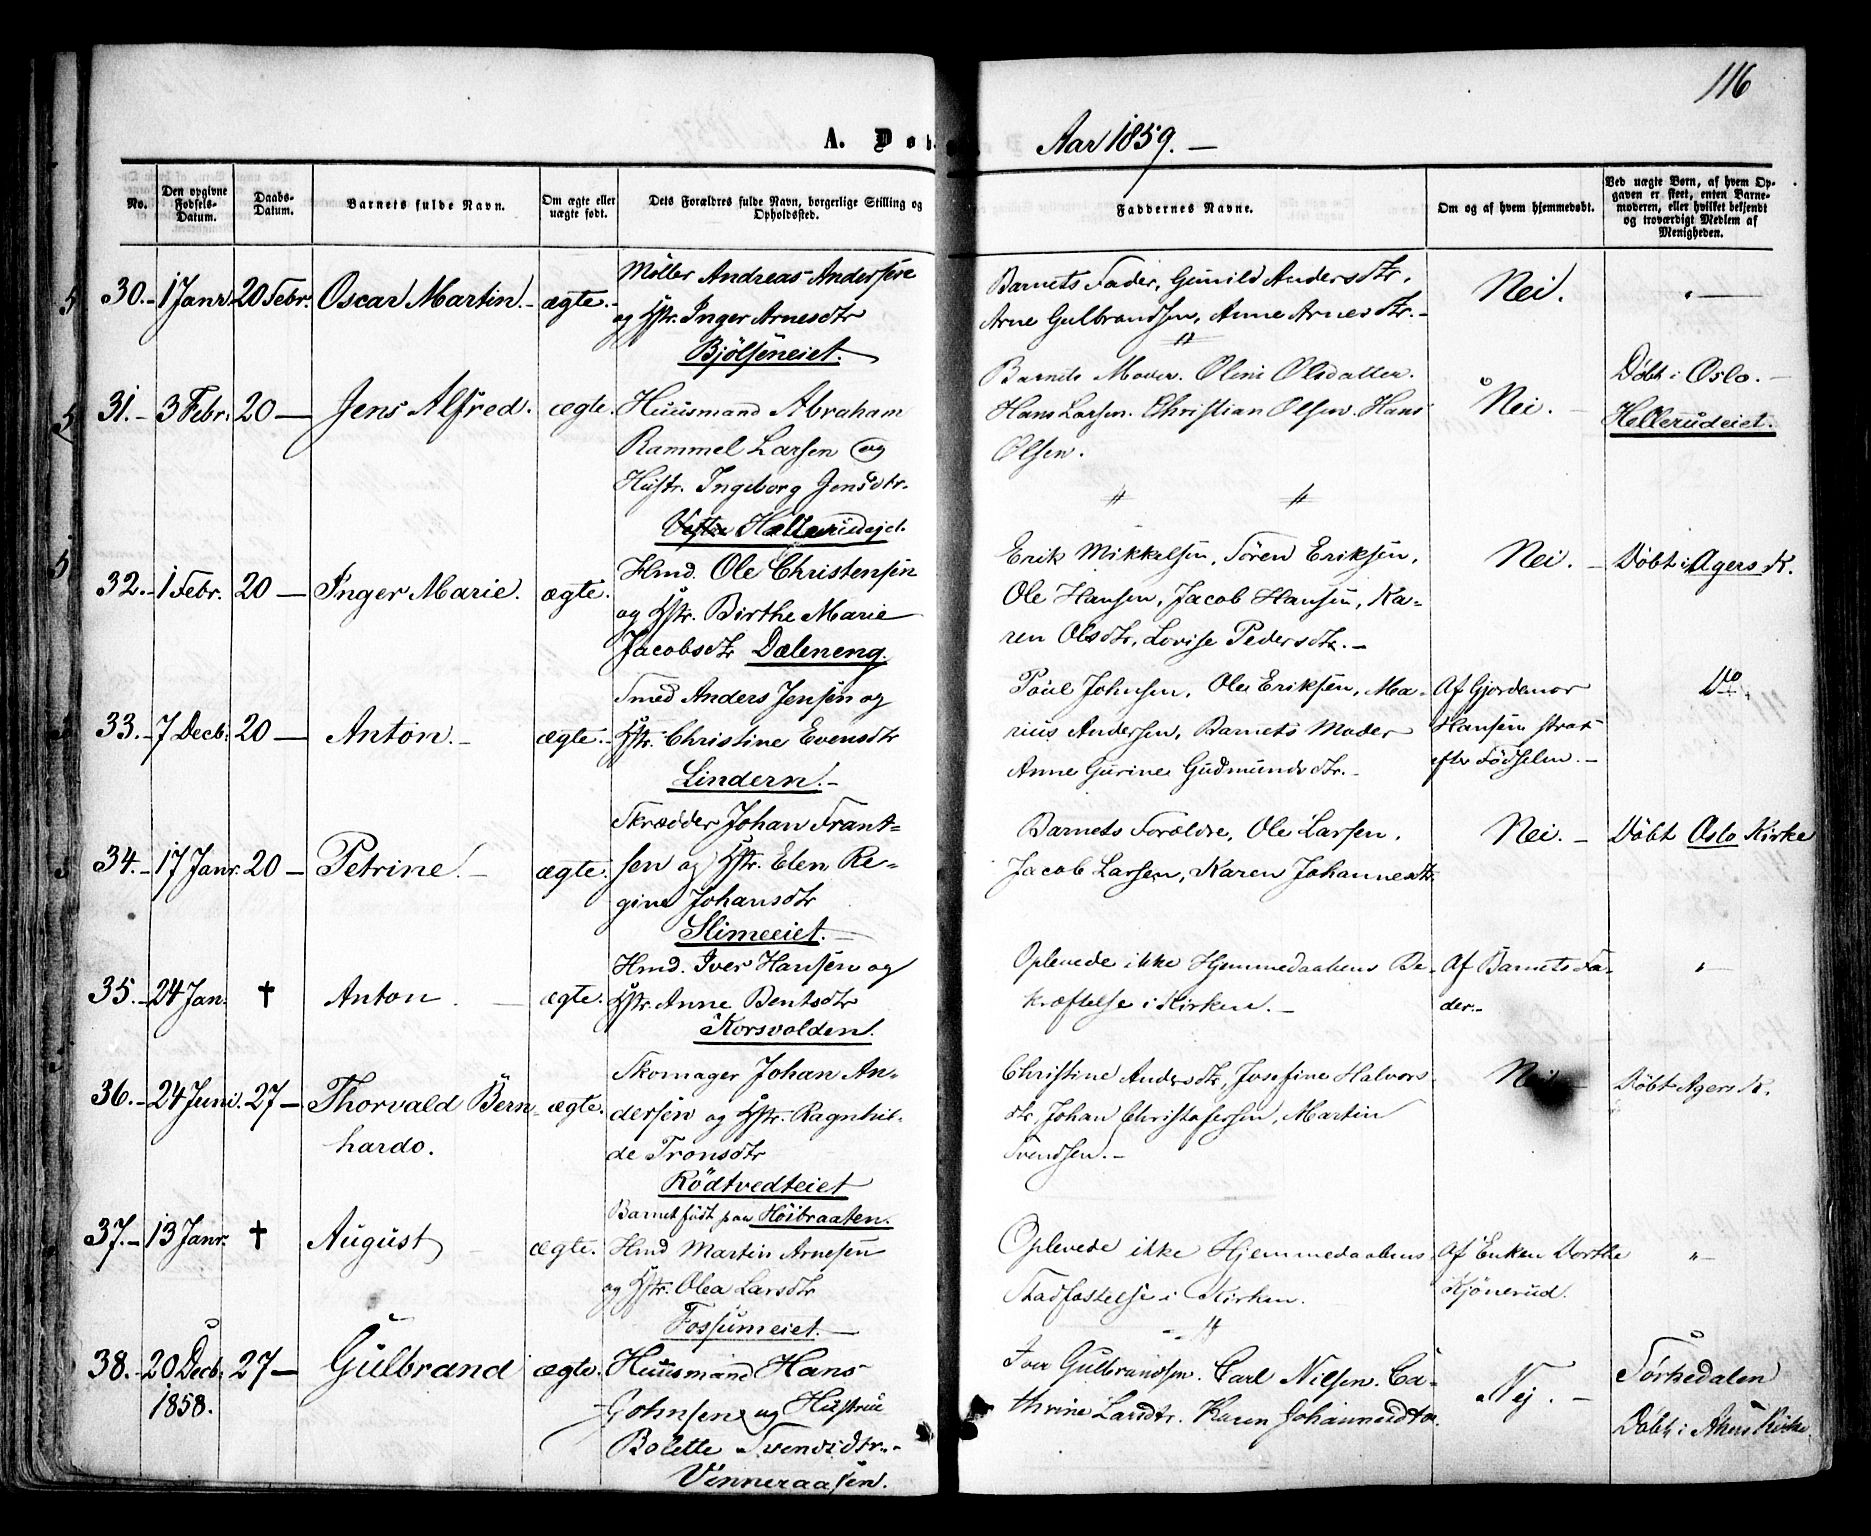 116
A. Døb
Aar 1859. —
No.
Den opgivne Fødsels-Datum.
Daabs-Datum.
Barnets fulde Navn.
Om ægte eller uægte født.
Dets Forældres fulde Navn, borgerlige Stilling og Opholdssted.
Faddernes Navne.
Om og af hvem hjemmedøbt.
Ved uægte Børn, af hvem Op-
gaven er skeet, enten Barne-
moderen, eller hvilket bekjendt
og troværdigt Medlem af
Menigheden.
30.- 1 Janr. 20 Febr. Oscar Martin. - ægte. -
Møller Andreas Andersen
og Hstr. Inger Arnesdtr
Bjölseneiet.
Barnets Fader, Gunild Andersdtr,
Arne Gulbrandsen, Anne Arnesdtr. -
Nei.
" —
31.- 3 Febr. 20 — Jens Alfred. ægte.
Huusmand Abraham
Rammel Larsen og
Hustr. Ingeborg Jensdtr.
Hellerudejet.
Barnets Moder. Oline Olsdatter.
Hans Larsen. Christian Olsen. Hans
Olsen.
Nei. -
Døbt i Oslo. -
Hellerudeiet.
32.- 1 Febr. 20 — Inger Marie. ægte.
Hmd. Ole Christensen
og Hstr. Birthe Marie
Jacobsdtr Dæleneng.
Erik Mikkelsen, Sören Eriksen,
Ole Hansen, Jacob Hansen, Ka-
ren Olsdtr, Lovise Pedersdtr. -
Nei. -
Döbt i Agers K.
33.- 7 Decb. 20 — Anton. - ægte. -
Smed Anders Jensen og
Hstr. Christine Evensdtr
Lindern. -
Poul Johnsen, Ole Eriksen, Ma-
rius Andersen, Barnets Moder
Anne Gurine Gudmundsdtr. -
Af Gjordemor
Hansen strax
efter Födselen. -
Do
34.- 17 Janr. 20 — Petrine. - ægte.
Skrædder Johan Frant-
sen og Hstr. Elen Re-
gine Johansdtr
Slimeeiet. -
Barnets Forældre, Ole Larsen,
Jacob Larsen, Karen Johannesdtr.
Nei. -
Döbt Oslo Kirke
35.- 24 Jan. † Anton. — ægte.
Hmd. Iver Hansen og
Hstr. Anne Bentsdtr
Korsvolden.
Oplevede ikke Hjemmedaabens Be-
kræftelse i Kirken. -
Af Barnets Fa-
der. -
" -
36.- 24 Juni. 27 — Thorvald Bern-
hardo. ægte.
Skomager Johan An-
dersen og Hstr. Ragnhil-
de Tronsdtr
Rödtvedteiet
Christine Andersdtr, Josefine Halvors-
dtr, Johan Christofersen, Martin
Svendsen. -
Nei -
Döbt Agers K.
37.- 13 Janr. † August - ægte.
Barnet födt paa Höibraaten.
Hmd Martin Arnesen
og Hstr. Olea Larsdtr
Fossumeiet. —
Oplevede ikke Hjemmedaabens
Stadfæstelse i Kirken.
Af Enken Dorthe
Kjönerud.
" -
38.- 20 Decb. 27 — Gulbrand ægte.
1858.
Huusmand Hans
Johnsen og Hustrue
Bolette Svendsdtr. -
Vinneraasen.
Iver Gulbrandsen. Carl Nilsen. Ca-
thrine Larsdtr. Karen Johannesdtr.
Nej. -
Sørkedalen
Døbt i Akers Kirke.